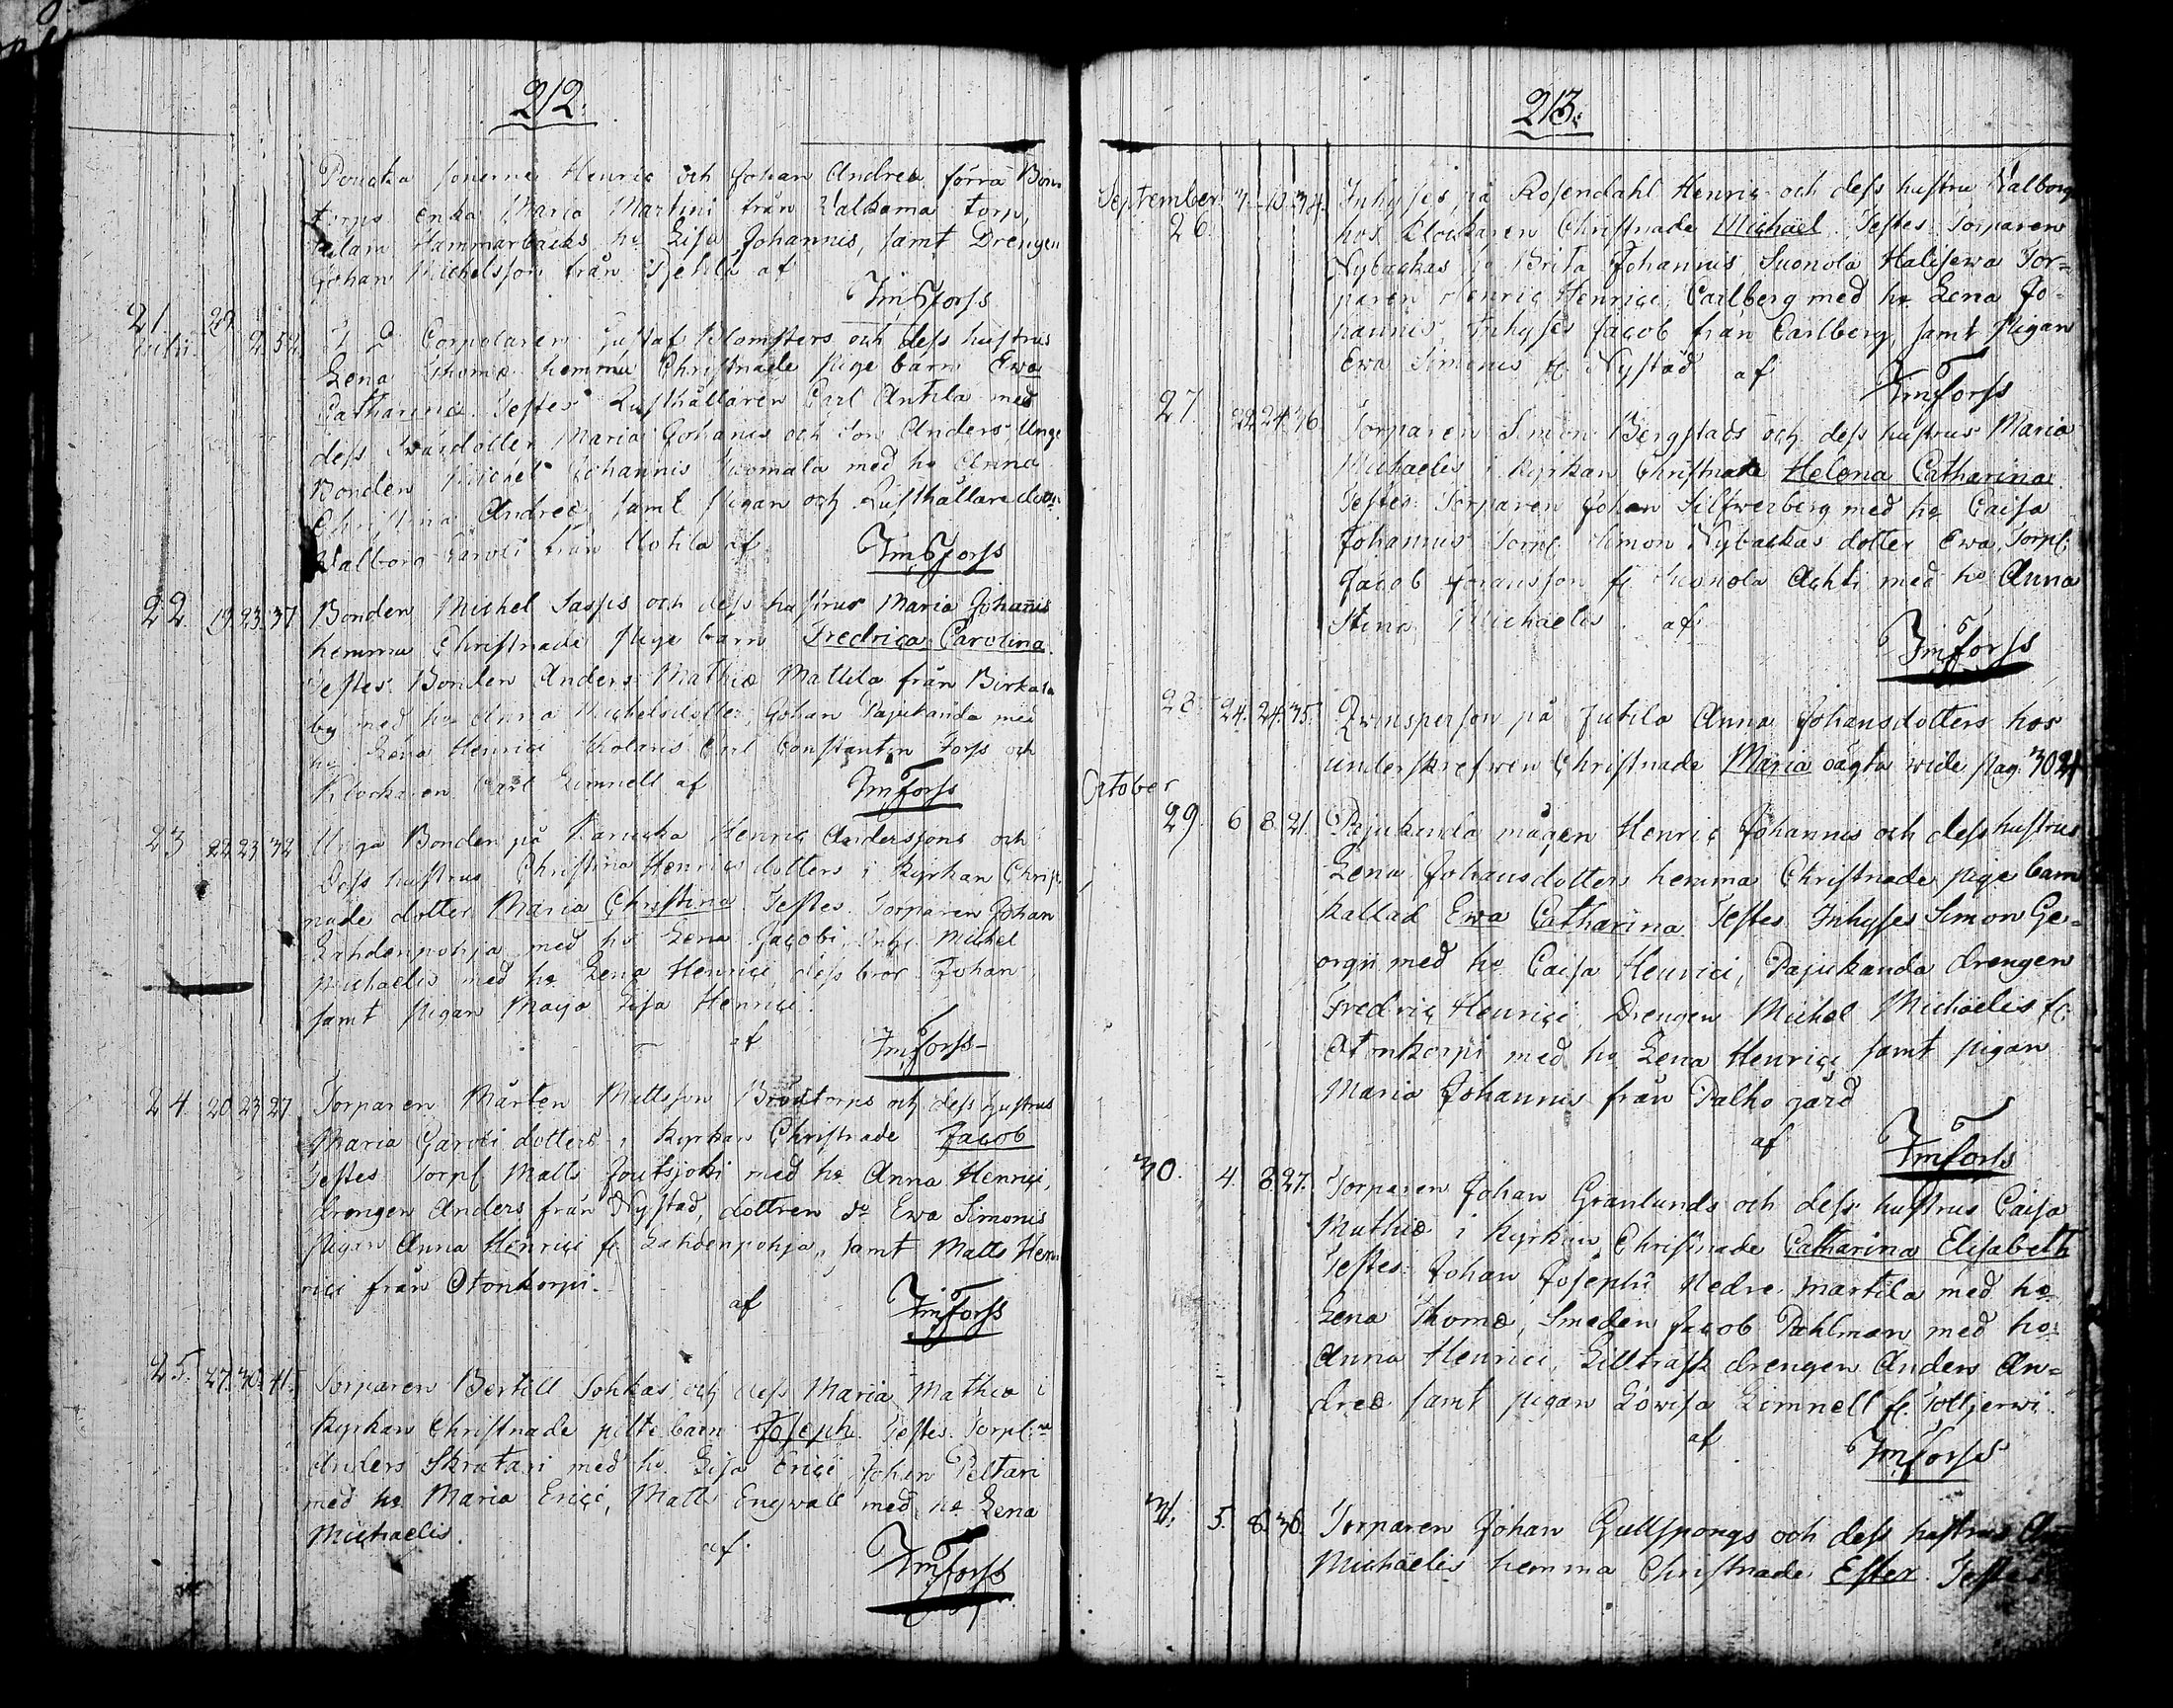 212.
sönerne Henric och Johan Andreæ förra
torps enka Maria Martini från Valkama torp,
Hammarbacks ho Lisa Johannis, samt Drengen
Johan Michelsson från af
Im Forss
21 Julii 29 2 52. Corpolaren Gustaf Blomsters och dess hustrus
Lena Thomæ hemma Christnade pige barn Ewa
Catharina. Testes Rusthållaren Carl Antila med
dess Swärdotter Maria Johanis och Son Anders Unge
Bonden Michel Johannis med ho Anna
Christina Andreæ, samt pigan och Rusthållare
Valborg Caroli från af
Im Forss
22. 19. 23. 37 Bonden Michel Saspis och dess hustrus Maria Johañis
hemma Christnade pige barn Fredrica Carolina.
Testes. Bonden Anders Mathiæ Mattila från Birkala
by med ho Anna Michelsdotter, Johan Pajukanda med
ho Lena Henrici Scolaris Carl Constantin Forss och
Klockaren Carl Limnell af
Im Forss
23 22 23 32 Unga Bonden på Henric Anderssons och
Dess hustrus Christina Henricsdotters i kyrkan Christ-
nade dotter Maria Christina. Testes. Torparen Johan
Lahdenpohja med ho Lena Jacobi, Inhs Michel
Michaelis med ho Lena Henrici, dess bror Johan
samt pigan Maja Lisa Henrici.
af Im Forss
24 20 23 27 Torparen Mårten Mattsson Brödtorps och dess hustrus
Maria Caroli dotters i kyrkan Christnade Jacob
Testes Torp Matts Joutsjoki med ho Anna Henrici,
drengen Anders från Nystad, dottren do Ewa Simonis
pigan Anna Henrici fr Lahdenpohja, samt Matts Hen
rici från Otonkorpi.
af Im Forss
25. 27. 30. 41. Torparen Bertill Sohkas och dess Maria Mathiæ i
kyrkan Christnade pilte barn Joseph. Testes. Torp:ne
Anders Skratari med ho Lisa Erici, Johan Peltari
med ho Maria Erici, Matts Engwall med ho Lena
Michaelis.
af. Im Forss
213.
September
26. 7. 10. 34. Inhyses på Rosendahl Henric och dess hustru Valborg
hos Klockaren Christnade Michael. Testes. Torparen
Nybackas ho Brita Johannis, Suonola Halisewa Tor=
paren Henric Henrici, Carlberg med ho Lena Jo-
hannis, Inhyses Jacob från Carlberg, samt Pigan
Ewa Simonis fr Nystad af
Im Forss
27. 22 24 36. Torparen Simon Bergstads och dess hustrus Maria
Michaelis i kyrkan Christnade Helena Catharina.
Testes. Torparen Johan Silfwerberg med ho Caisa
Johannis Torp: Simon Nybackas dotter Ewa, Torp:
Jacob Johansson fr Suonola Achti med ho Anna
Stina Michaelis. af
Im Forss
28. 24. 24. 35. Qwinsperson på Jutila Anna Johansdotters hos
underskrefwen Christnade Maria oägta wide pag. 302
October
29. 6 8. 21. Pajukanda mågen Henric Johannis och dess hustrus
Lena Johansdotters hemma Christnade pige barn
kallad Ewa Catharina. Testes. Inhyses Simon Ge=
orgii med ho Caisa Henrici, Pajukanda drengen
Fredric Henrici, Drengen Michel Michaelis fr
Otonkorpi med ho Lena Henrici samt pigan
Maria Johannis från Palho gård
af Im Forss
30. 4. 8. 27. Torparen Johan Granlunds och dess hustrus Caisa
Mathiæ i kyrkan Christnade Catharina Elisabeth
Testes. Johan Josephi Nedre Martila med ho
Lena Thomæ, Smeden Jacob Dahlman med ho
Anna Henrici, Lilltrask drengen Anders An=
dreæ samt pigan Lowisa Limnell fr Poltjerwi.
af
Im Forss
31. 5. 8. 36. Torparen Johan Gullspongs och dess hustrus
Michaelis hemma Christnade Ester. Testes